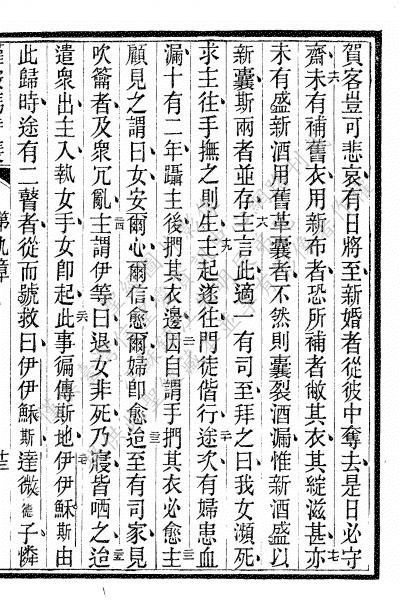 賀客豈可悲哀有日將至新婚者從彼中奪去是日必守
齋未有補舊衣用新布者恐所補者敝其衣其綻滋甚亦
未有盛新酒用舊革囊者不然則囊裂酒漏惟新酒盛以
新囊斯兩者並存主言此適一有司至拜之曰我女瀕死
求主往手撫之則生主起遂往門徒偕行途次有婦患血
漏十有二年躡主後捫其衣邊因自謂手捫其衣必愈主
顧見之謂曰女安爾心爾信愈爾婦即愈迨至有司家見
吹籥者及衆冗亂主謂伊等曰退女非死乃寢皆哂之迨
遣衆出主入執女手女卽起此事徧傳斯地伊伊穌斯由
此歸時途有二瞽者從而號救曰伊伊穌斯達微德子憐
第九章
十六
十七
十八
十九
二十
二一
二二
二三
二四
二五
二六
二七